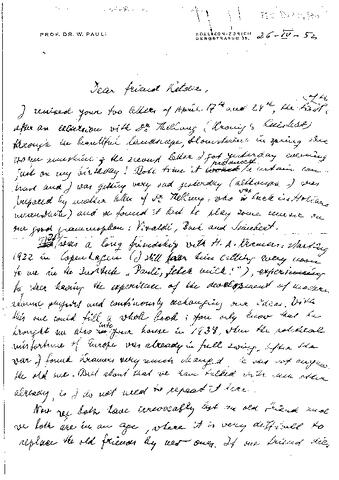 PROF. DR. W. PAULI
ZOLLIKON-ZÜRICH
BERGSTRASSE 35
26-IV-52
Dear friend
I received your two letters of April 17th and 24th, the first
after an excursion with Dr.
through the beautiful landscape, blooming in spring, in a
warm sunshine; the second letter I got yesterday evening
just on my birthday! Both time it produced a certain
and I was getting very sad yesterday (although I was
prepared by another letter of Dr. who is back in Holland
meanwhile) and so found it best to play some music on
our good grammophon: Vivaldi, Bach and Schubert.
It was a long friendship with H. A. Kramers: starting
1922 in Copenhagen (I still hear him calling very warm
to me in the Institute: "Pauli, fetch milk!"), experiencing
together having the experience of the development of modern
physics and continuously exchanging our ideas. With
this one could fill a whole book: you only know that he
brought me also into your house in 1938, when the
misfortune of Europe was already in full swing. After the
war I found Kramers very much changed, he was not anymore
the old one. But about that we have talked with each other
already, so I do not need to repeat it here.
Now we both have irrevocably lost an old friend and
we both are in an age, where it is very difficult to
replace the old friends by new ones. If one friend dies,